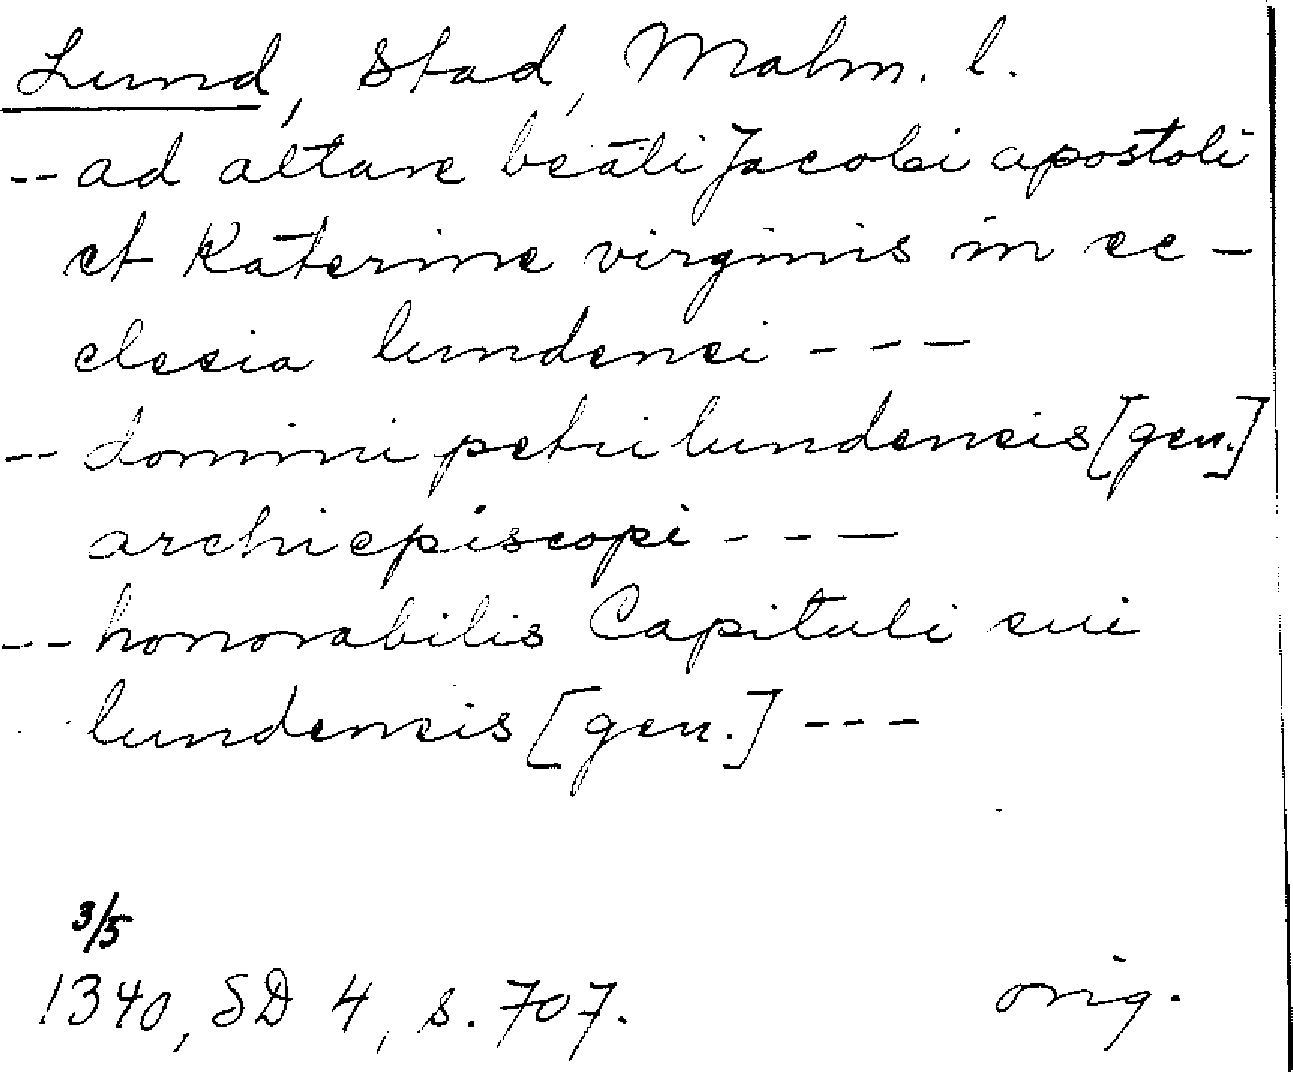 Lund, Stad, Malm. l.
-- ad altare beati Jacobi apostoli
et Katerine virginis in ec-
clesia lundensi ---
-- domini petri lundensis [gen.]
archiepiscopi ---
-- honorabilis Capituli sui
lundensis [gen.] ---
3/5
1340, SD 4, s. 707.
orig.